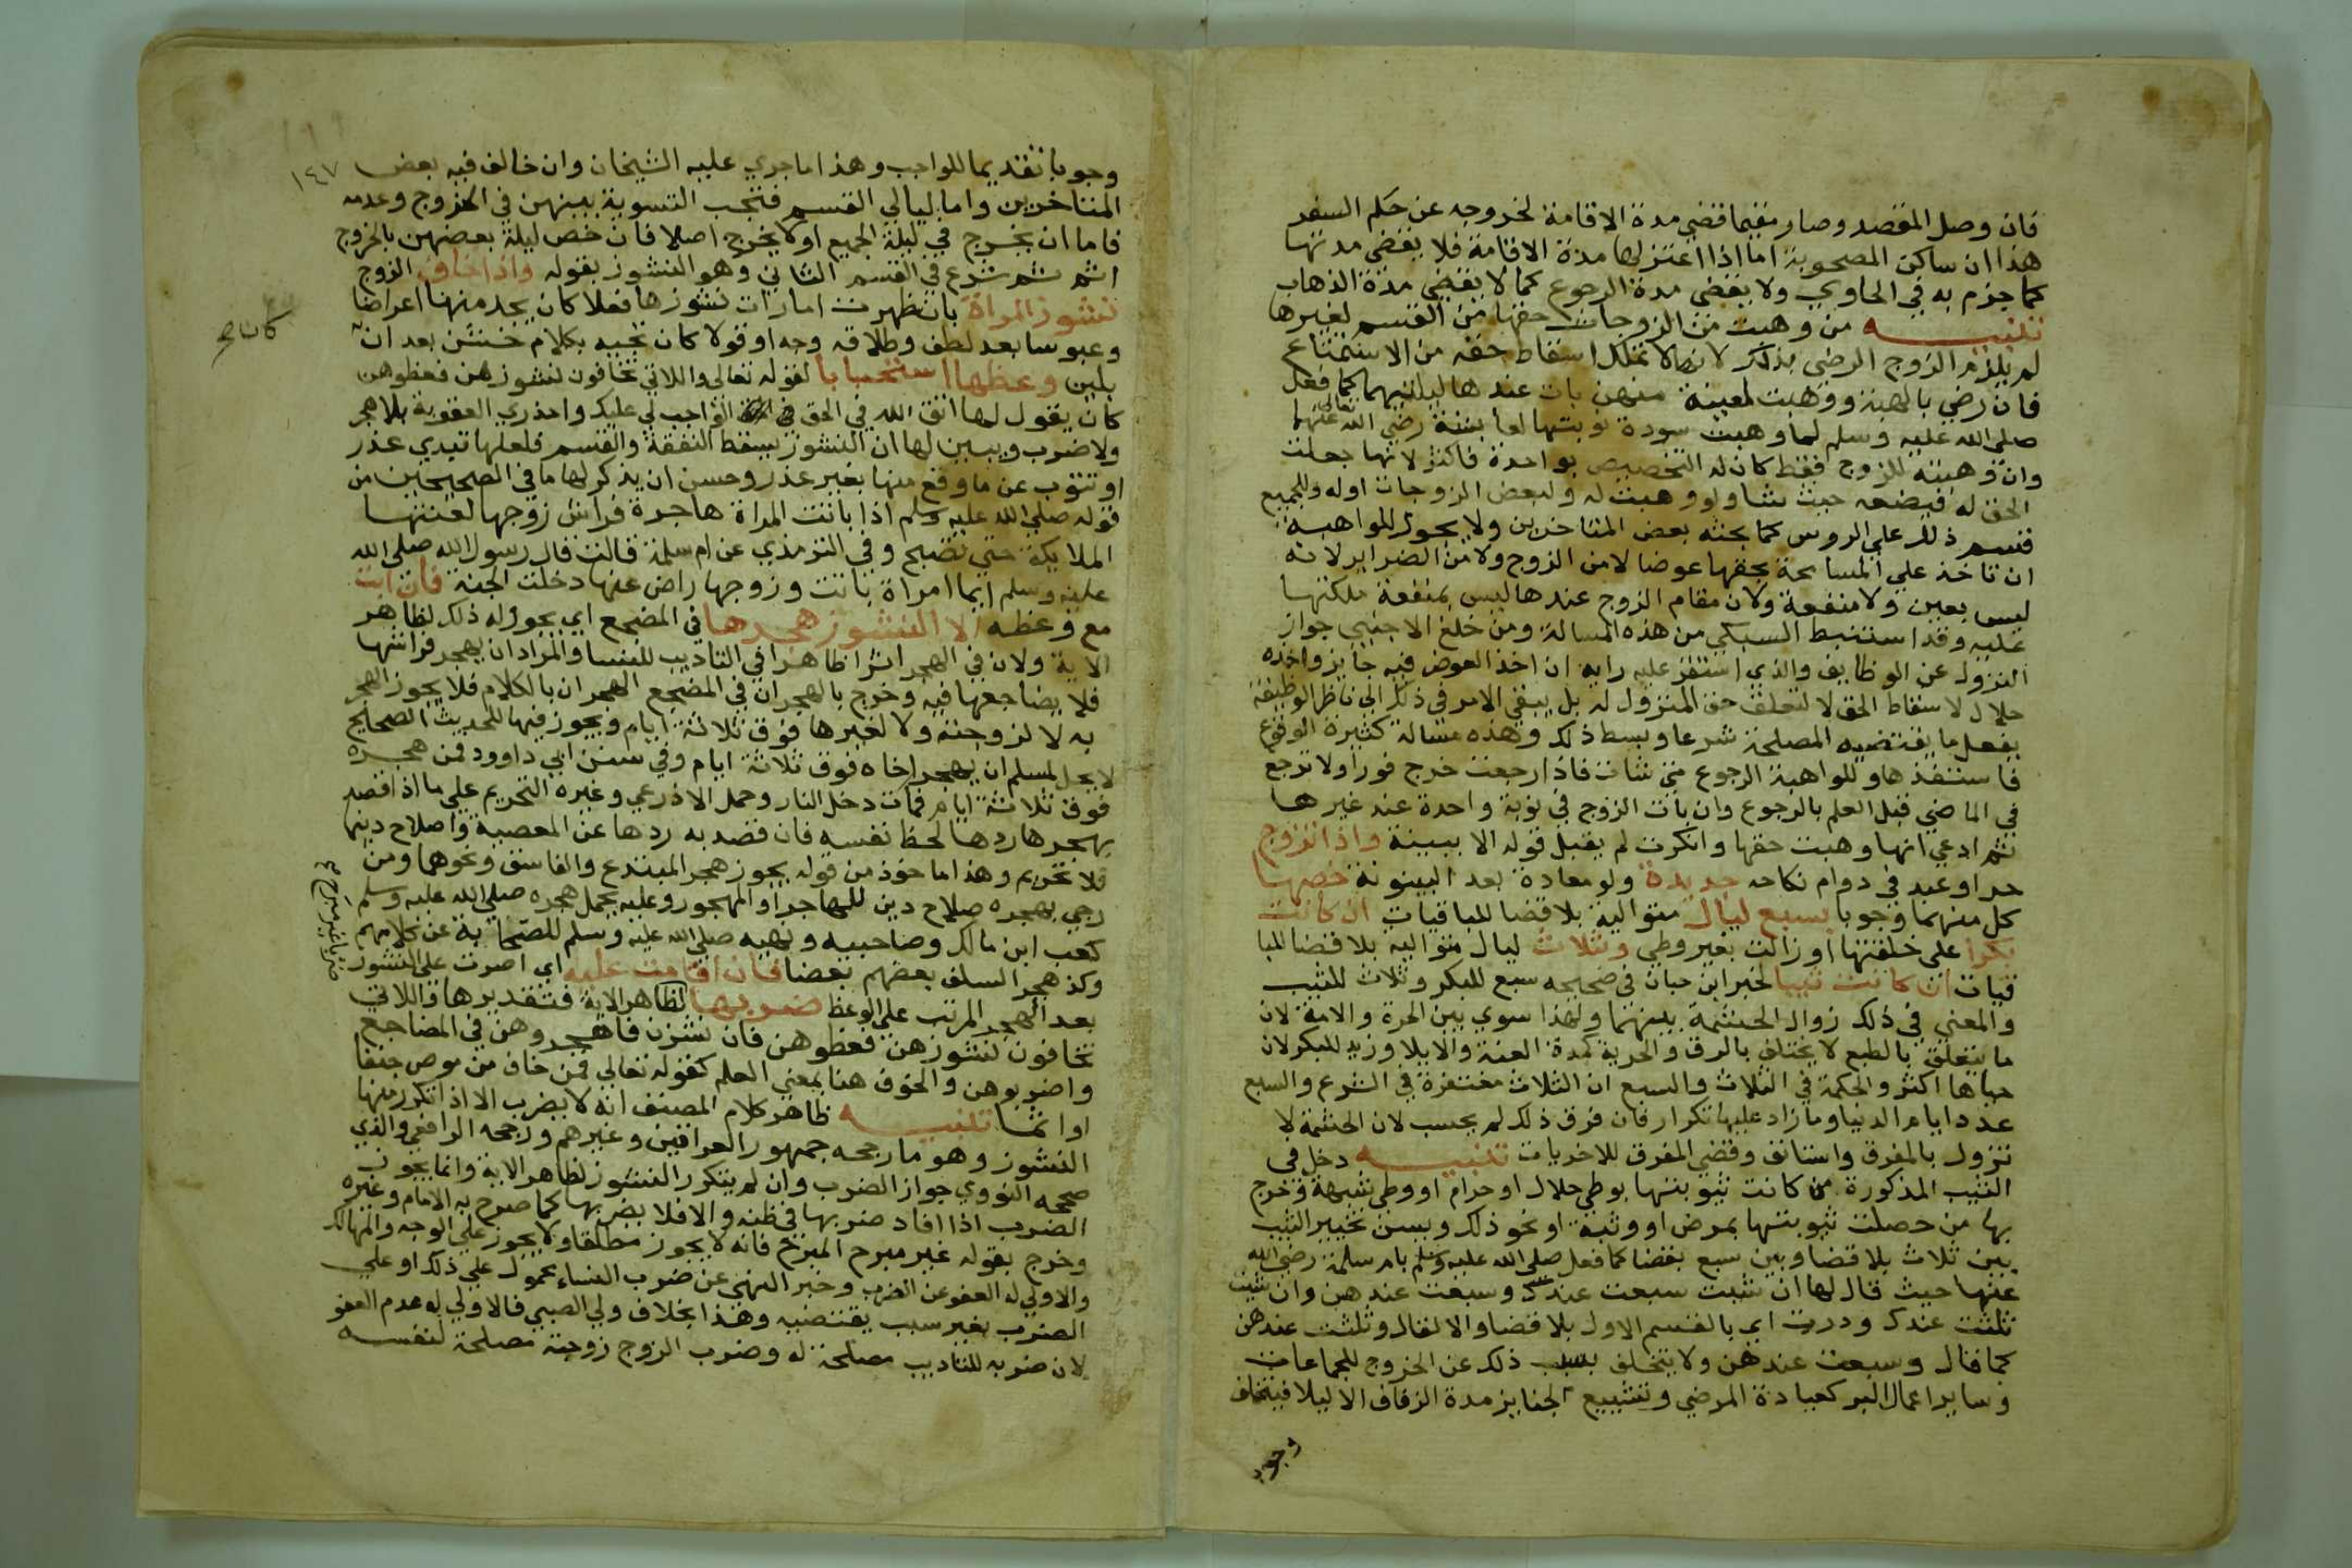 فان وصل المقصد وصار مقيما قضي مدة الاقامة لخروجه عن حكم السفر
هذا ان ساكن المصحوبة اما اذا اعتزلها مدة الاقامة فلا يقضي مدتها
كما جزم به في الحاوي ولا يقضي مدة الرجوع كما لا يقضي مدة الذهاب
تنبيه من وهبت من الزوجات حقها من القسم لغيرها
لم يلزم الزوج الرضي بذلك لانها لا تملك اسقاط حقه من الاستمتاع
فان رضي بالهبة ووهبت لمعينة منهن بات عندها ليلتيهما كما فعل
صلى الله عليه وسلم لما وهبت سودة نوبتها لعايشة رضي الله تعالى عنهما
وان وهبته للزوج فقط كان له التخصيص بواحدة فاكثر لانها جعلت
الحق له فيضعه حيث شا ولو وهبت له ولبعض الزوجات او له وللجميع
قسم ذلك علي الروس كما بحثه بعض المتاخرين ولا يجوز للواهبة
ان تاخذ علي المسامحة بحقها عوضا لا من الزوج ولا من الضراير لانه
ليس بعين ولا منفعة ولان مقام الزوج عندها ليس بمنفعة ملكتها
عليه وقد استنبط السبكي من هذه المسالة ومن خلع الاجنبي جواز
النزول عن الوظايف والذي استقر عليه رايه ان اخذ العوض فيه جايز واخذه
حلال لاسقاط الحق لا لتعلق حق المنزول له بل يبقي الامر في ذلك الي ناظر الوظيفة
يفعل ما يقتضيه المصلحة شرعا وبسط ذلك وهذه مسالة كثيرة الوقوع
فاستفدها وللواهبة الرجوع متي شات فاذا رجعت خرج فورا ولا ترجع
في الماضي قبل العلم بالرجوع وان بات الزوج في نوبة واحدة عند غيرها
ثم ادعي انها وهبت حقها وانكرت لم يقبل قوله الا ببينة واذا تزوج
حر او عبد في دوام نكاحه جديدة ولو معادة بعد البينونة خصها
كل منهما وجوبا بسبع ليال متوالية بلا قضا للباقيات ان كانت
بكرا علي خلقتها او زالت بغير وطي وثلاث ليال متوالية بلا قضا للبا
قيات ان كانت ثيبا لخبر ابن حبان في صحيحه سبع للبكر وثلاث للثيب
والمعني في ذلك زوال الحشمة بينهما ولهذا سوي بين الحرة والامة لان
ما يتعلق بالطبع لا يختلف بالرق والحرية كمدة العنة والايلا وزيد للبكر لان
حياها اكثر والحكمة في الثلاث والسبع ان الثلاث مغتفرة في الشرع والسبع
عدد ايام الدنيا وما زاد عليها تكرار فان فرق ذلك لم يحسب لان الحشمة لا
تزول بالمفرق واستانف وقضي المفرق للاخريات تنبيه دخل في
الثيب المذكورة من كانت ثيوبتها بوطي حلال او حرام او وطي شبهة وخرج
بها من حصلت ثيوبتها بمرض او وثبة او نحو ذلك ويسن تخيير الثيب
بين ثلاث بلا قضا وبين سبع بقضا كما فعل صلى الله عليه وسلم بام سلمة رضي الله
عنها حيث قال لها ان شيت سبعت عندك وسبعت عندهن وان شيت
ثلثت عندك ودرت اي بالقسم الاول بلا قضا والا لقال وثلثت عندهن
كما قال وسبعت عندهن ولا يتخلف بسبب ذلك عن الخروج للجماعات
وساير اعمال البر كعيادة المرضي وتشييع الجنايز مدة الزفاف الا ليلا فيتخلف
وجوبا
١٤٧
وجوبا تقديما للواجب وهذا ما جري عليه الشيخان وان خالف فيه بعض
المتاخرين واما ليالي القسم فتجب التسوية بينهن في الخروج وعدمه
فاما ان يخرج في ليلة الجميع او لا يخرج اصلا فان خص ليلة بعضهن بالخروج
اثم ثم شرع في القسم الثاني وهو النشوز بقوله واذا خاف الزوج
نشوز المراة بان ظهرت امارات نشوزها فعلا كان يجد منها اعراضا
وعبوسا بعد لطف وطلاقه وجه او قولا كان تجيبه بكلام خشن بعد ان
كان
بلين وعظها استحبابا لقوله تعالى واللاتي تخافون نشوزهن فعظوهن
كان يقول لها اتق الله في الحق الواجب لي عليك واحذري العقوبة بلا هجر
ولا ضرب ويبين لها ان النشوز يسقط النفقة والقسم فلعلها تبدي عذر
او تتوب عن ما وقع منها بغير عذر وحسن ان يذكر لها ما في الصحيحين من
قوله صلى الله عليه وسلم اذا باتت المراة هاجرة فراش زوجها لعنتها
الملايكة حتي تصبح وفي الترمذي عن ام سلمة قالت قال رسول الله صلى الله
عليه وسلم ايما امراة باتت وزوجها راض عنها دخلت الجنة فان ابت
مع وعظه الا النشوز هجرها في المضجع اي يجوز له ذلك لظاهر
الاية ولان في الهجر اثرا ظاهرا في التاديب للنسا والمراد ان يهجر فراشها
فلا يضاجعها فيه وخرج بالهجران في المضجع الهجران بالكلام فلا يجوز الهجر
به لا لزوجته ولا لغيرها فوق ثلاثة ايام ويجوز فيها للحديث الصحيح
لا يحل لمسلم ان يهجر اخاه فوق ثلاثة ايام وفي سنن ابي داوود فمن هجره
فوق ثلاثة ايام فمات دخل النار وحمل الاذرعي وغيره التحريم علي ما اذا قصد
بهجرها ردها لحظ نفسه فان قصد به ردها عن المعصية واصلاح دينها
فلا تحريم وهذا ماخوذ من قوله يجوز هجر المبتدع والفاسق ونحوهما ومن
رجي بهجره صلاح دين للهاجر او المهجور وعليه يحمل هجره صلى الله عليه وسلم
كعب ابن مالك وصاحبيه ونهيه صلى الله عليه وسلم للصحابة عن كلامهم
وكذ هجر السلف بعضهم بعضا فان اقامت عليه اي اصرت على النشوز
بعد الهجر المرتب على الوعظ ضربها لظاهر الاية فتقديرها واللاتي
ضربا غير مبرح
تخافون نشوزهن فعظوهن فان نشزن فاهجروهن في المضاجع
واضربوهن والخوف هنا بمعني العلم كقوله تعالى فمن خاف من موص جنفا
او اثما تنبيه ظاهر كلام المصنف انه لا يضرب الا اذا تكرر منها
النشوز وهو ما رجحه جمهور العراقيين وغيرهم ورجحه الرافعي والذي
صححه النووي جواز الضرب وان لم يتكرر النشوز لظاهر الاية وانما يجوز
الضرب اذا افاد ضربها في ظنه والا فلا يضربها كما صرح به الامام وغيره
وخرج بقوله غير مبرح المبرح فانه لا يجوز مطلقا ولا يجوز علي الوجه والمهالك
والاولي له العفو عن الضرب وخبر النهي عن ضرب النساء محمول علي ذلك او علي
الضرب بغير سبب يقتضيه وهذا بخلاف ولي الصبي فالاولي له عدم العفو
لان ضربه للتاديب مصلحة له وضرب الزوج زوجته مصلحة لنفسه